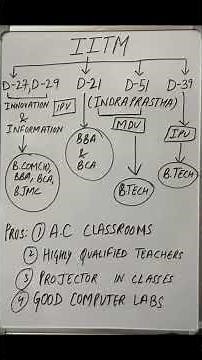 IITM
D-27,D-29 D-21 D-51 D-39
INNOVATION & INFORMATION
IPU
(INDRAPRASTHA)
MDU
IPU
B.COM(H), BBA, BCA, BJMC
BBA & BCA
B.TECH
B.TECH
PROS: ① A.C CLASSROOMS
② HIGHLY QUALIFIED TEACHERS
③ PROJECTOR IN CLASSES
④ GOOD COMPUTER LABS